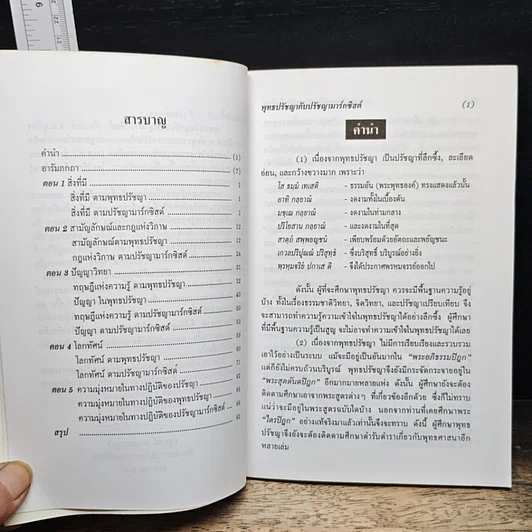 สารบาญ
คำนำ (1)
อารัมภกถา (7)
ตอน 1 สิ่งที่มี 1
สิ่งที่มี ตามพุทธปรัชญา 1
สิ่งที่มี ตามปรัชญามาร์กซิสต์
ตอน 2 สามัญลักษณ์และกฎแห่งวิภาษ
สามัญลักษณ์ตามพุทธปรัชญา
กฎแห่งวิภาษ ตามปรัชญามาร์กซิสต์
ตอน 3 ปัญญาวิทยา
ทฤษฎีแห่งความรู้ ตามพุทธปรัชญา
ปัญญา ในพุทธปรัชญา
ทฤษฎีแห่งความรู้ ตามปรัชญามาร์กซิสต์
ปัญญา ตามปรัชญามาร์กซิสต์
ตอน 4 โลกทัศน์
โลกทัศน์ ตามพุทธปรัชญา
โลกทัศน์ ตามปรัชญามาร์กซิสต์
ตอน 5 ความมุ่งหมายในทางปฏิบัติของปรัชญา
ความมุ่งหมายในทางปฏิบัติของพุทธปรัชญา
ความมุ่งหมายในทางปฏิบัติของปรัชญามาร์กซิสต์
สรุป
พุทธปรัชญากับปรัชญามาร์กซิสต์ (1)
คำนำ
(1) เนื่องจากพุทธปรัชญา เป็นปรัชญาที่ลึกซึ้ง, ละเอียด
อ่อน, และกว้างขวางมาก เพราะว่า
โส ธมฺมํ เทเสติ - ธรรมอัน (พระพุทธองค์) ทรงแสดงแล้วนั้น
อาทิ กลฺยาณํ - งดงามทั้งในเบื้องต้น
มชฺเฌ กลฺยาณํ - งดงามในท่ามกลาง
ปริโยสาน กลฺยาณํ - และงดงามในที่สุด
สาตฺถํ สพฺพยญฺชนํ - เพียบพร้อมด้วยอัตถะและพยัญชนะ
เกวลปริปุณฺณํ ปริสุทฺธํ - ซึ่งบริสุทธิ์ บริบูรณ์อย่างยิ่ง
พฺรหฺมจริยํ ปกาเส ติ - จึงได้ประกาศพรหมจรรย์ออกไป
ดังนั้น ผู้ที่จะศึกษาพุทธปรัชญา ควรจะมีพื้นฐานความรู้อยู่
บ้าง ทั้งในเรื่องธรรมชาติวิทยา, จิตวิทยา, และปรัชญาเปรียบเทียบ จึง
จะสามารถทำความรู้ความเข้าใจในพุทธปรัชญาได้อย่างลึกซึ้ง ผู้ศึกษา
ที่มีพื้นฐานความรู้เป็นสูญ จะไม่อาจทำความเข้าใจในพุทธปรัชญาได้เลย
(2) เนื่องจากพุทธปรัชญา ไม่มีการเรียบเรียงและรวบรวม
เอาไว้อย่างเป็นระบบ แม้จะมีอยู่เป็นอันมากใน "พระอภิธรรมปิฎก"
แต่ก็ยังไม่ครบถ้วนบริบูรณ์ พุทธปรัชญาจึงยังมีกระจัดกระจายอยู่ใน
"พระสุตตันตปิฎก" อีกมากมายหลายแห่ง ดังนั้น ผู้ศึกษายังจะต้อง
ติดตามศึกษาเอาจากพระสูตรต่างๆ ที่เกี่ยวข้องอีกด้วย ซึ่งก็ไม่ทราบ
แน่ว่าจะมีอยู่ในพระสูตรฉบับใดบ้าง นอกจากท่านที่เคยศึกษาพระ
"ไตรปิฎก" อย่างแท้จริงมาแล้วเท่านั้นจึงจะทราบ ดังนี้ ผู้ศึกษาพุทธ
ปรัชญาจึงยังจะต้องติดตามศึกษาตำรับตำราเกี่ยวกับพุทธศาสนาอีก
หลายเล่ม